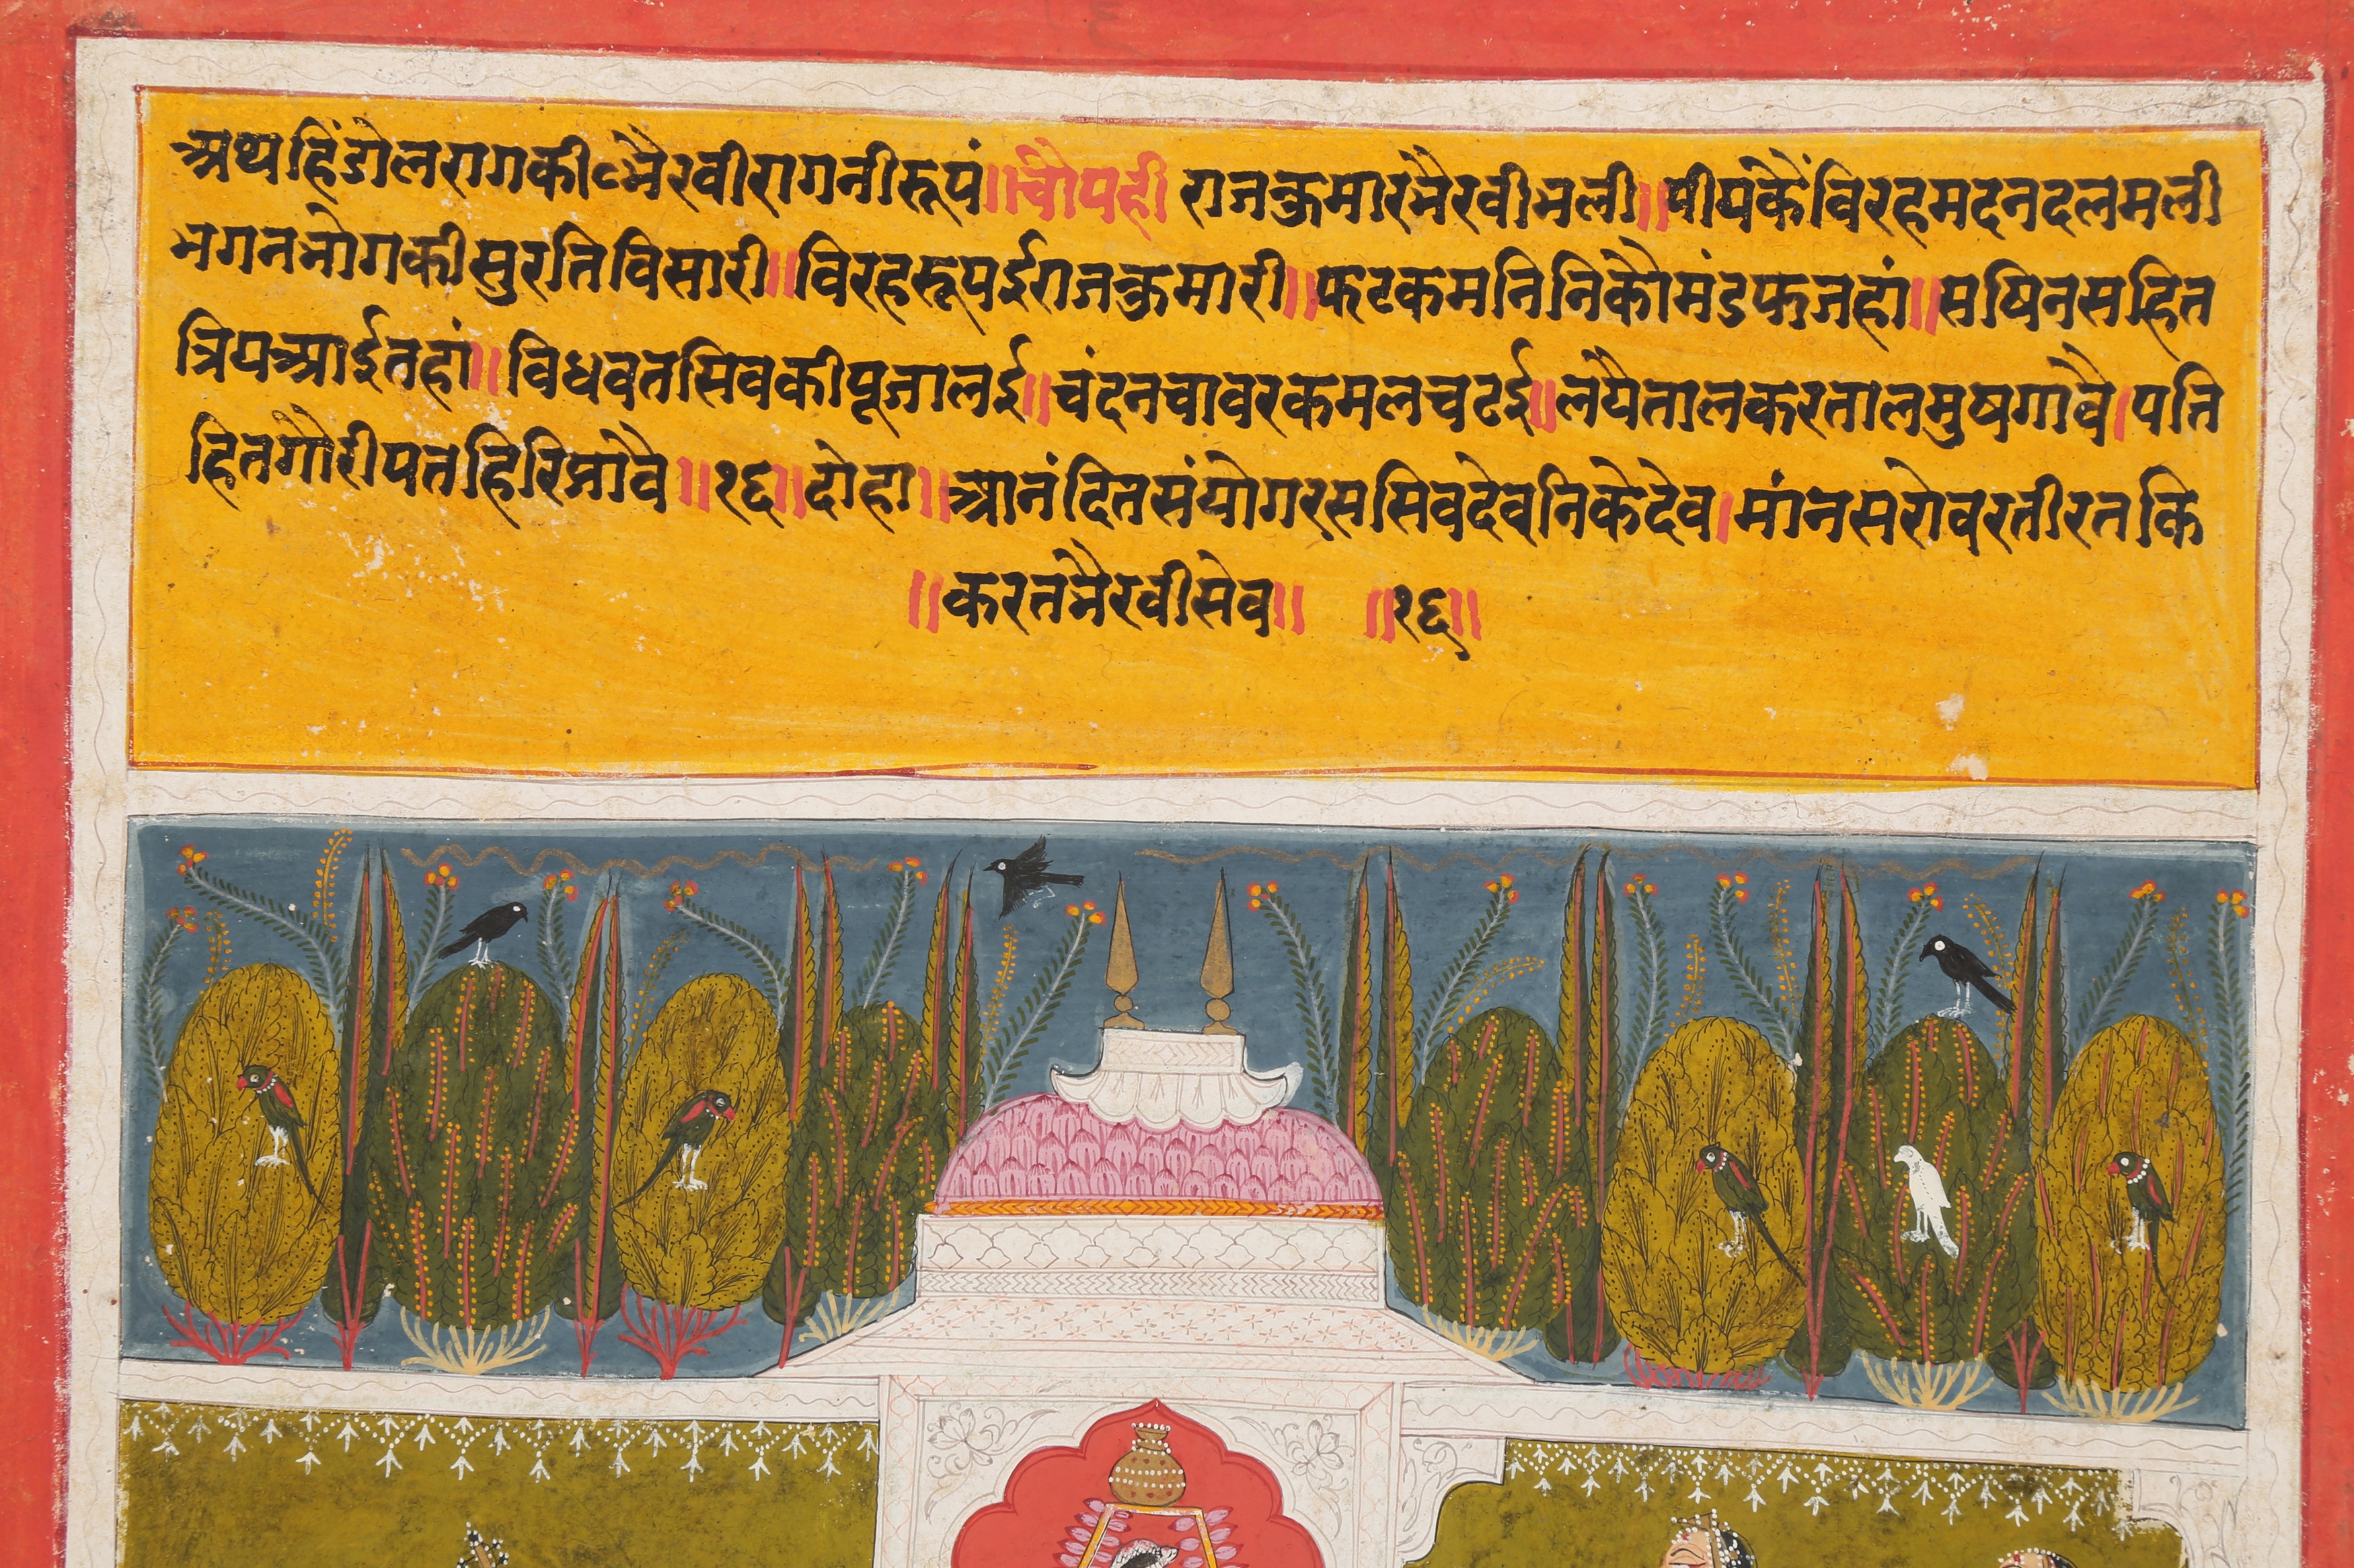 अथहिंडोलरागकीभैरवीरागनीरूपं॥चौपही राजकुमारभैरवीभली॥पीयकैंविरहमदनदलमली
भगनभोगकीसुरतिविसारी॥विरहरूपईराजकुमारी॥फटकमनिनिकौमंडफजहां॥सषिनसहित
त्रियआईतहां॥विधवतसिवकीपूजालई॥चंदनचावरकमलचटई॥लयैतालकरतालमुषगावै।पति
हितगौरीपतहिरिझावै॥१६॥दोहा॥आनंदितसंयोगरससिवदेवनिकेदेव।मांनसरोवरतीरतकि
॥करतभैरवीसेव॥ ॥१६॥